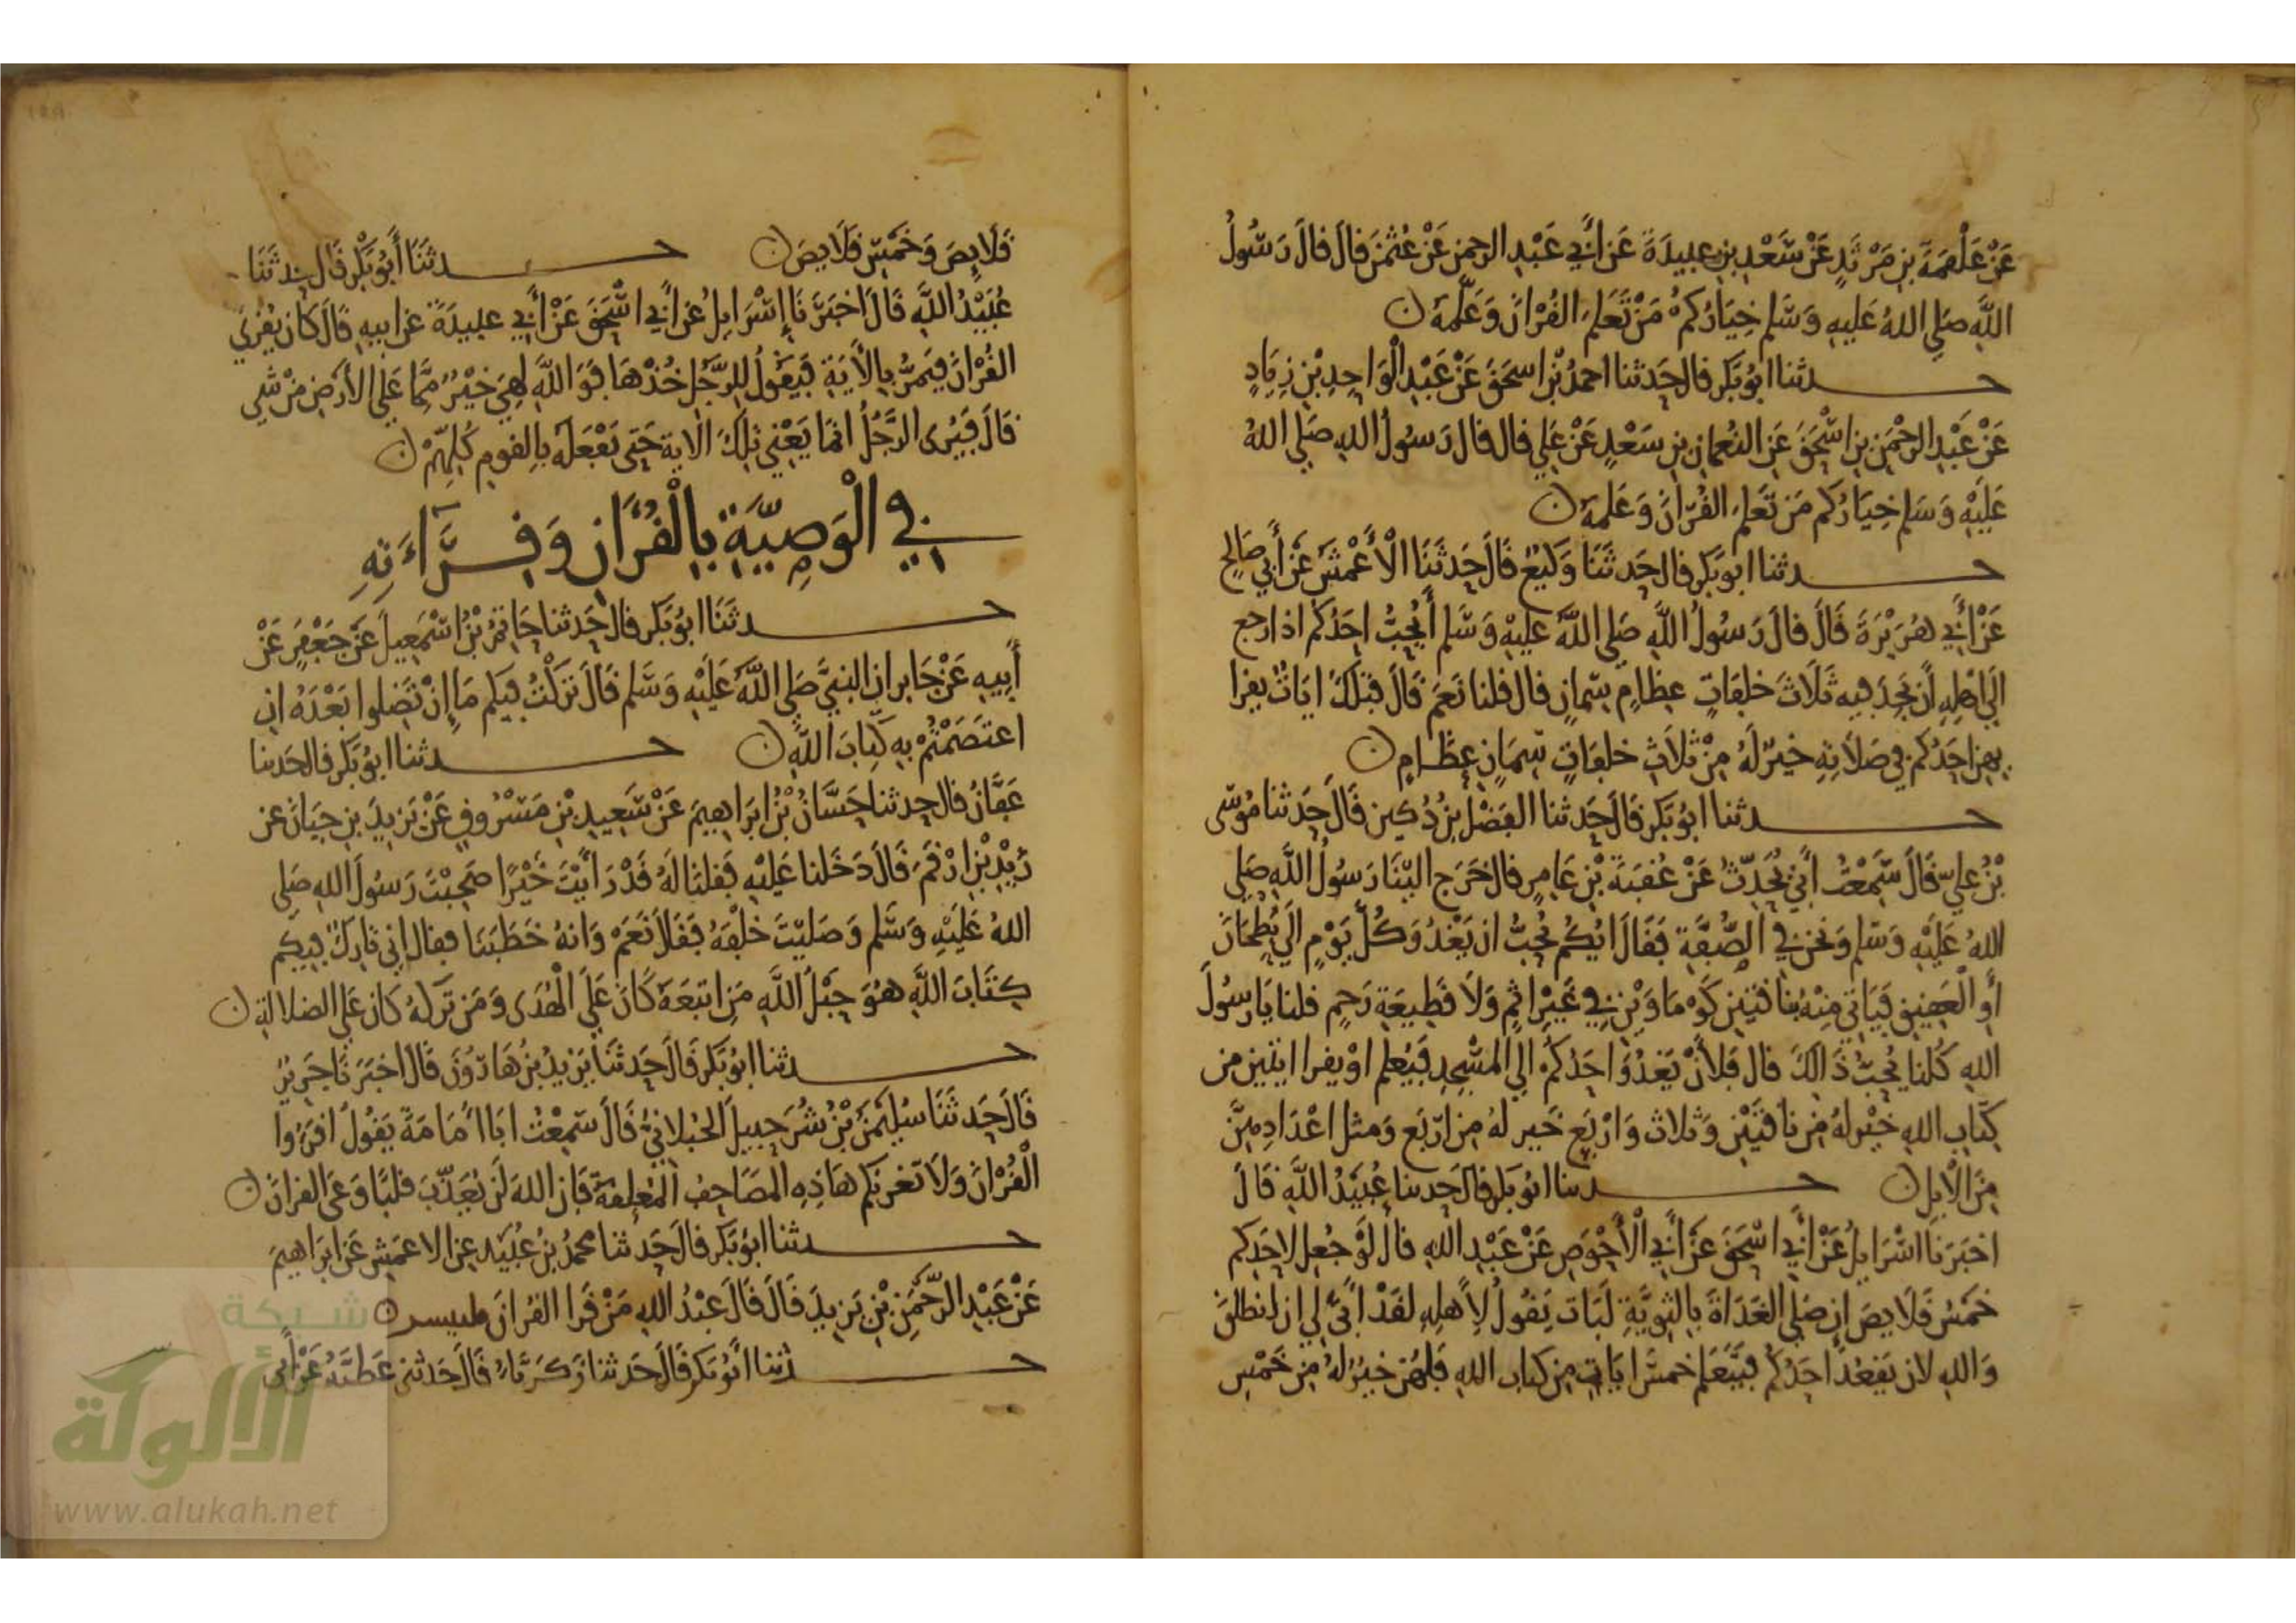 عَنْ عَلْقَمَةَ بْنِ مَرْثَدٍ عَنْ سَعْدِ بْنِ عبيدَةَ عَن أَبِي عَبْدِ الرحمن عَنْ عُثْمٰنَ قالَ قالَ رَسُولُ
اللَّهِ صَلى اللهُ عَليهِ وَسَّلم خِيَارُكُمْ مَنْ تَعَلمَ القُرْانَ وَعَلَّمَهُ
حدثنا ابُو بَكر قال حَدثنا احمدُ بْنُ اسحَقَ عَنْ عَبْدِ الْوَاحِدِ بْنِ زِيَادٍ
عَنْ عَبْدِ الرحْمَنِ بنِ اسْحَقَ عَنِ النُعمانِ بنِ سَعْدٍ عَنْ عَلي قال قال رَسُولُ اللهِ صَلى اللهُ
عَلَيْهِ وَسَلم خِيَارُكم مَن تَعَلمَ القُرْانَ وَعَلمَهُ
حدثنا ابو بَكر قال حَدثَنَا وَكيعٌ قَالَ حَدثَنَا الْأَعْمَشَ عَنْ أَبِي صَالِح
عَنْ أَبِي هُرَيْرَةَ قَالَ قالَ رَسُولُ اللَّهِ صَلى اللَّهُ عَليْهِ وَسَّلم أَيُحِبُّ احَدُكم اذا رجع
الَى اهْلِهِ انْ يَجِدَ فيهِ ثَلَاثَ خلِفَاتٍ عظامٍ سِمانٍ قال قلنا نَعَم قَالَ فثلَاث ايَاتٍ يقرا
بهن احَدُكم في صَلَاتِهِ خيرٌ لَهُ مِنْ ثلَاثِ خلفَاتٍ سِمَانٍ عِظَامٍ
حدثنا ابُو بَكر قَالَ حَدثنا الفَضْلُ بنُ دُكين قَالَ حَدثنا مُوسَى
بْنُ عَليّ قَالَ سَمِعْتُ أَبِي يُحَدِّثُ عَنْ عُقبَةَ بْنِ عَامِرٍ قال خَرَج الَيْنَا رَسُولُ اللَّهِ صَلى
اللهُ عَلَيْه وَسَلم وَنحن في الصُّفَّةِ فَقَالَ ايُكُم يُحِبُّ ان يَغْدُوَ كُلَّ يَوْمٍ الَى بُطْحَانَ
أَوِ الْعَقِيقِ فَيَاتِيَ مِنْهُ بناقَتَيْنِ كَوْمَاوَيْنِ فِي غَيْرِ اثمٍ وَلَا قَطِيعَةِ رَحِمٍ قلنا يَا رَسُولَ
اللهِ كُلنا يُحِبُّ ذَالِكَ قال فَلأَنْ يَغْدُوَ احَدُكُم الى المسْجِدِ فَيُعَلم اوْ يقرا ايتين من
كتَابِ اللهِ خيْر لهُ مِن ناقَتَيْنِ وَثلاث وَارْبَع خَير لهُ مِن ارْبَع وَمثل اعْدَادِهِنَّ
مِنَ الْابِلِ حدثنا ابُو بَكر قال حَدثنا عُبَيْدُ اللَّهِ قَالَ
اخبَرَنا اسْرَايلُ عَنْ أَبِي اسْحَقَ عَنْ أَبِي الْأَحْوَصِ عَنْ عَبْدِ اللهِ قالَ لَوْ جُعِلَ لاحَدِكم
خَمسُ قلَايصَ ان صَلى الغَدَاةَ بِالقَرْيَةِ لَبَاتَ يَقُولُ لأهلِهِ لقَدْ أنى لي ان انطلقَ
وَاللهِ لان يَقعُدَ احَدُكُم فيَتعَلمَ خمسَ ايَاتٍ مِن كتاب اللهِ فَلهُن خيرٌ لهُ مِن خَمْسِ
قَلَايِصَ وَخَمْسِ قَلَايِصَ حدثَنَا أَبُو بَكْر قَال حدثَنَا
عُبَيْدُ اللَّهِ قَالَ اخبَرَنَا إِسْرَايلُ عَن أَبِي اسْحَقَ عَنْ أَبِي عبيدَةَ عن ابيهِ قَالَ كَانَ يُقْرِي
القُرْانَ فيَمرُّ بِالْأَيَةِ فَيَقُولُ لِلرَّجُلِ خُذْهَا فَوَاللَّهِ لهِيَ خَيْرٌ مِمَّا عَلَى الأَرْضِ مِنْ شَيٍ
قَالَ فيَرى الرَّجُلُ انمَا يَعْني تِلكَ الايةَ حَتى يَفْعَلَهُ بِالقومِ كُلِّهِمْ
في الْوَصِيَّةِ بِالْقُرْانِ وَقِرَاءَتِهِ
حدثَنَا ابُو بَكر قال حَدثنا حَاتمُ بْنُ اسْمَعِيلَ عَنْ جَعْفرٍ عَنْ
أَبِيهِ عَنْ جَابر ان النبيَّ صَلى اللَّهُ عَلَيْهِ وَسَّلم قَالَ تَرَكْتُ فِيكم مَا إِنْ تَضِلوا بَعْدَهُ ان
اعتَصَمْتُمْ بِهِ كِتَابَ اللَّهِ حدثنا ابُو بَكر قال حَدثنا
عَفَّانُ قال حدثنا حَسَّانُ بْنُ ابرَاهِيمَ عَنْ سَعِيدِ بْنِ مَسْرُوقٍ عَنْ يَزِيدَ بنِ حَيَانَ عن
زَيْدِ بْنِ ارْقَمَ قَالَ دَخَلنا عَلَيْهِ فَقلنَا لَهُ قَدْ رَايْتَ خَيْرًا صَحِبْتَ رَسُولَ اللهِ صَلى
اللهُ عَلَيْهِ وَسَّلم وَصَليْتَ خَلْفَهُ فَقَالَ نَعَمْ وَانهُ خَطَبَنَا فقال اني تارِكٌ فيكم
كِتَابَ اللَّهِ هُوَ حَبْلُ اللَّهِ مَنِ اتبَعَهُ كَانَ عَلَى الْهُدَى وَمَن تَرَكهُ كَانَ عَلى الضلالةِ
حدثنا ابُو بَكر قَالَ حَدثَنَا يَزيدُ بنُ هَارُونَ قَالَ اخبَرَنَا جَرِيرٌ
قَالَ حَدثَنَا سُليْمَنُ بْنُ شُرَحبيلَ الخَولانيُّ قَالَ سَمِعْتُ ابَا أُمَامَةَ يَقُولُ اقرَءُوا
الْقُرْانَ وَلَا تغرنكم هَاذِهِ المَصَاحِفُ المُعَلقةُ فَان اللهَ لَن يُعَذِّبَ قلبًا وَعَى القرانَ
حدثنا ابُو بَكر قال حَدثنا محمدُ بْنُ عُبَيْدٍ عنِ الاعمَشِ عَن ابرَاهيمَ
عَنْ عَبْدِ الرَّحْمَنِ بْنِ يَزِيدَ قَالَ قَالَ عَبْدُ اللهِ مَنْ قَرا القُرانَ فليبشر
حدثنا أَبُو بَكر قَالَ حَدثنا زَكَرِيَّاءُ قَالَ حَدثني عَطيَّةُ عَنْ أَبي
شبكة
الألوكة
www.alukah.net